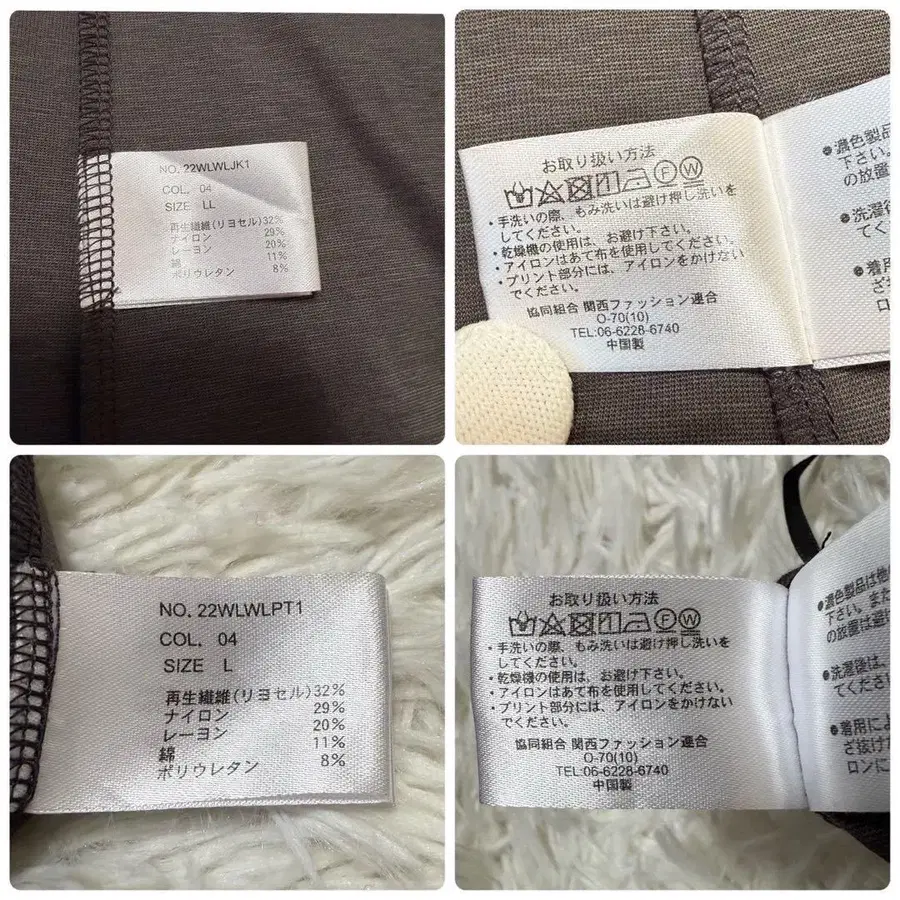 NO. 22WLWLJK1
COL. 04
SIZE LL
再生繊維(リヨセル)32%
ナイロン 29%
レーヨン 20%
綿 11%
ポリウレタン 8%
お取り扱い方法
・手洗いの際、もみ洗いは避け押し洗いを
してください。
・乾燥機の使用は、お避け下さい。
・アイロンはあて布を使用してください。
・プリント部分には、アイロンをかけない
でください。
協同組合 関西ファッション連合
O-70(10)
TEL:06-6228-6740
中国製
●濃色製品
下さい。
の放置
●洗濯後
てく
●着用
ざ
ロン
NO. 22WLWLPT1
COL. 04
SIZE L
再生繊維(リヨセル)32%
ナイロン 29%
レーヨン 20%
綿 11%
ポリウレタン 8%
お取り扱い方法
・手洗いの際、もみ洗いは避け押し洗いを
してください。
・乾燥機の使用は、お避け下さい。
・アイロンはあて布を使用してください。
・プリント部分には、アイロンをかけない
でください。
協同組合 関西ファッション連合
O-70(10)
TEL:06-6228-6740
中国製
●濃色製品は他
下さい。また
の放置は避け
●洗濯後は、
てください
●着用によ
ざ抜けた
ロンに